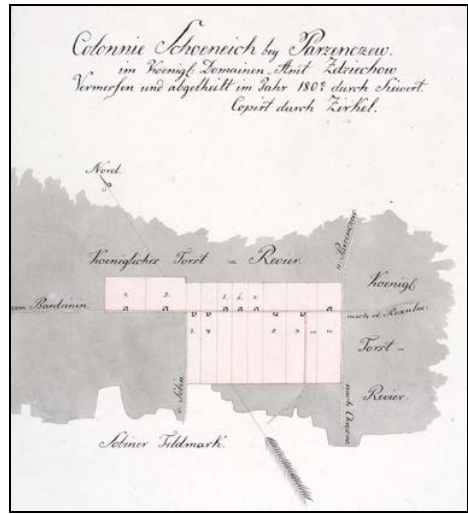 Colonnie Schoeneich bey Parzenczew.
im Koenigl. Domainen Amt Zdziechow
Vermessen und abgetheilt im Jahr 180 durch Siewert.
Copirt durch Zirkel.
Nord.
Koenigliches Forst = Revier.
n. Parzenczew
Koenigl.
von Bardzinin
nach d.
1. 2.
Forst =
Revier.
v. Solin
nach
Soliner Feldmark.